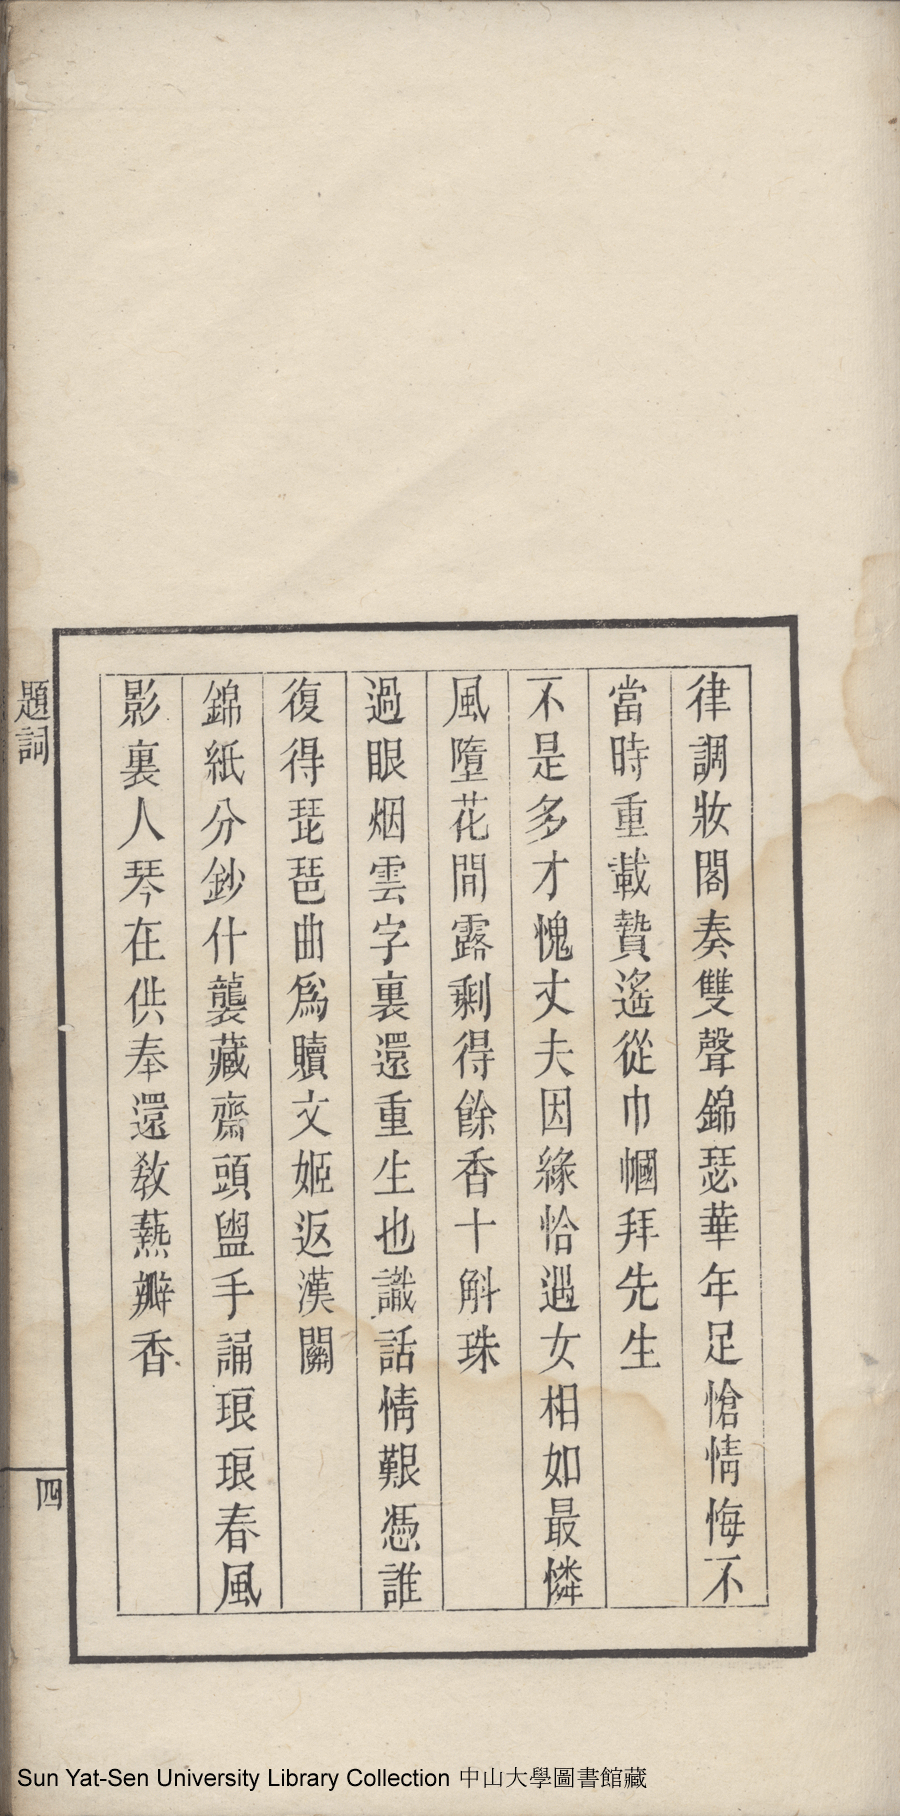 律調妝閣奏雙聲錦瑟華年足愴情悔不
當時重載贄遙從巾幗拜先生
不是多才愧丈夫因緣恰遇女相如最憐
風墮花間露剩得餘香十斛珠
過眼烟雲字裏還重生也識話情艱憑誰
復得琵琶曲爲贖文姬返漢關
錦紙分鈔什襲藏齋頭盥手誦琅琅春風
影裏人琴在供奉還教爇瓣香
題詞
四
Sun Yat-Sen University Library Collection 中山大學圖書館藏